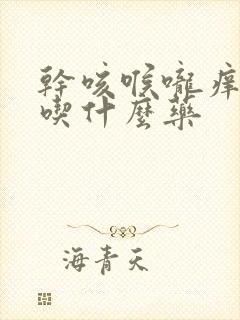 幹咳喉嚨痒
喫什麼藥
海青天